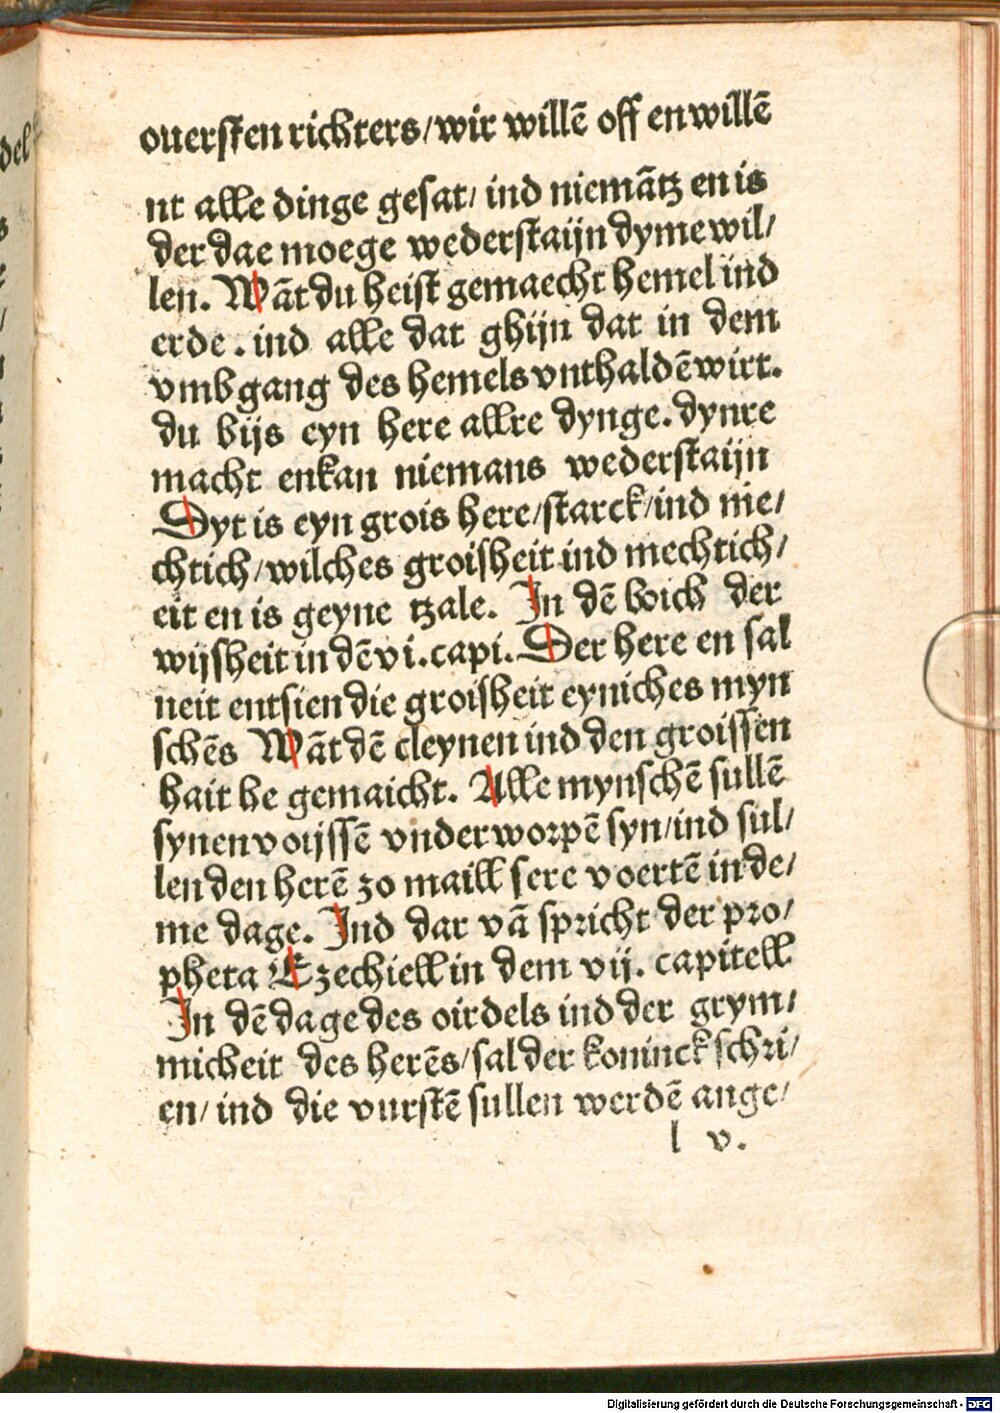 ouersten richters/wir willē off en willē
nt alle dinge gesat/ ind niemātz en is
der dae moege wederstaijn dyme wil/
len. Wāt du heist gemaecht hemel ind
erde. ind alle dat ghijn dat in dem
vmbgang des hemels vnthaldē wirt.
du bijs eyn here allre dynge. dynre
macht enkan niemans wederstaijn
Dyt is eyn grois here/starck/ind me/
chtich/wilches groisheit ind mechtich/
eit en is geyne tzale. In dē boich der
wijsheit in dē vi. capi. Der here en sal
neit entsien die groisheit eyniches myn
schēs Wāt dē cleynen ind den groissen
hait he gemaicht. Alle mynschē sullē
synen voijssē vnderworpē syn/ind sul/
len den herē zo maill sere voertē in de/
me dage. Ind dar vā spricht der pro/
pheta Ezechiell in dem vij. capitell
In dē dage des oirdels ind der grym/
micheit des herēs/sal der koninck schri/
en/ ind die vurstē sullen werdē ange/
l v.
Digitalisierung gefördert durch die Deutsche Forschungsgemeinschaft - DFG